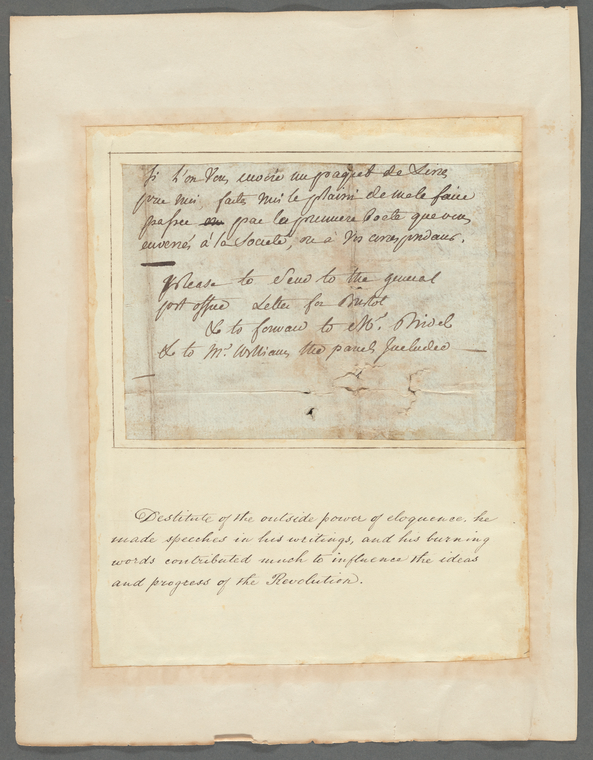 Si l'on Vous envoie un paquet de Livres
pour moi, faites moi le plaisir de me le faire
passer par la premiere boete que vous
enverrés à la Societé, ou à Vos correspondans.
please to Send to the general
post office Letter for Bristol
& to forward to Mr. Bridel
& to Mr. Williams the parcels Included
Destitute of the outside power of eloquence, he
made speeches in his writings, and his burning
words contributed much to influence the ideas
and progress of the Revolution.